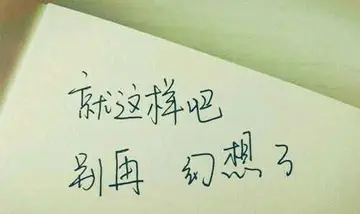 就这样吧
别再 幻想了